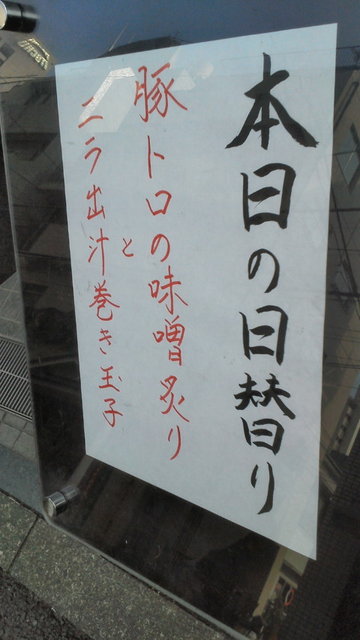 本日の日替り
豚トロの味噌炙り
と
ニラ出汁巻き玉子